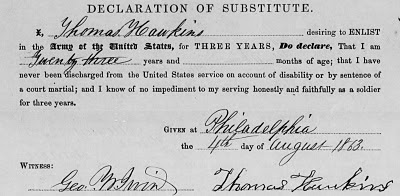 DECLARATION OF SUBSTITUTE.
I, Thomas Hawkins desiring to ENLIST
in the Army of the United States, for THREE YEARS, Do declare, That I am
Twenty three years and months of age; that I have
never been discharged from the United States service on account of disability or by sentence of
a court martial; and I know of no impediment to my serving honestly and faithfully as a soldier
for three years.
GIVEN AT Philadelphia
the 4th day of August 1863.
WITNESS:
Geo. Thomas Hawkins